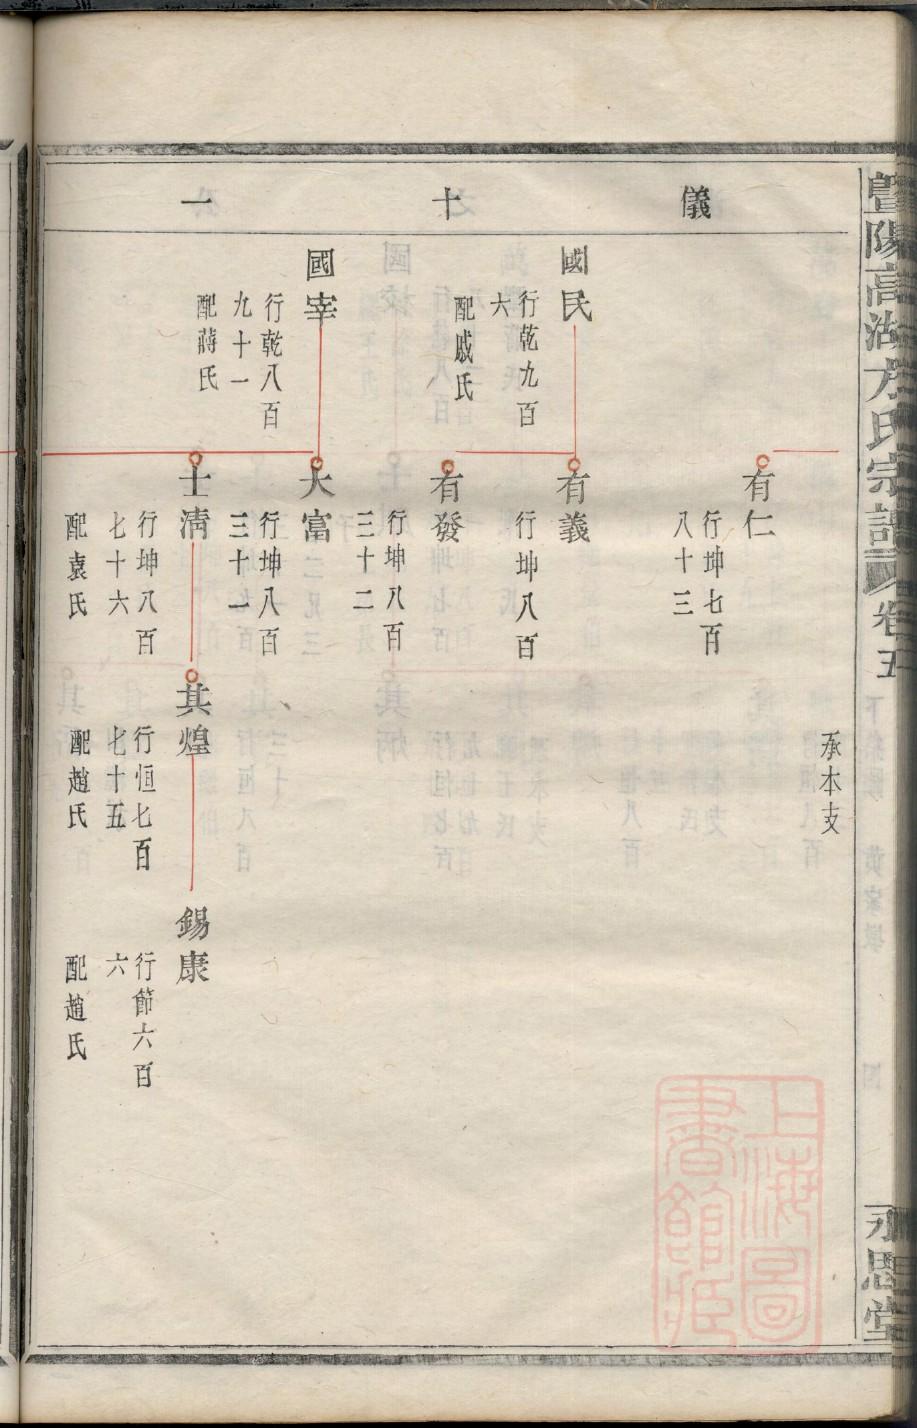 暨陽高湖方氏宗譜
卷五
永思堂
儀十一
承本支
有仁
行坤七百
八十三
國民
行乾九百
六
配戚氏
有義
行坤八百
有發
行坤八百
三十二
國宰
行乾八百
九十一
配蔣氏
大富
行坤八百
三十一
士清
行坤八百
七十六
配袁氏
其煌
行恒七百
七十五
配趙氏
錫康
行節六百
六
配趙氏
上海圖
書館藏